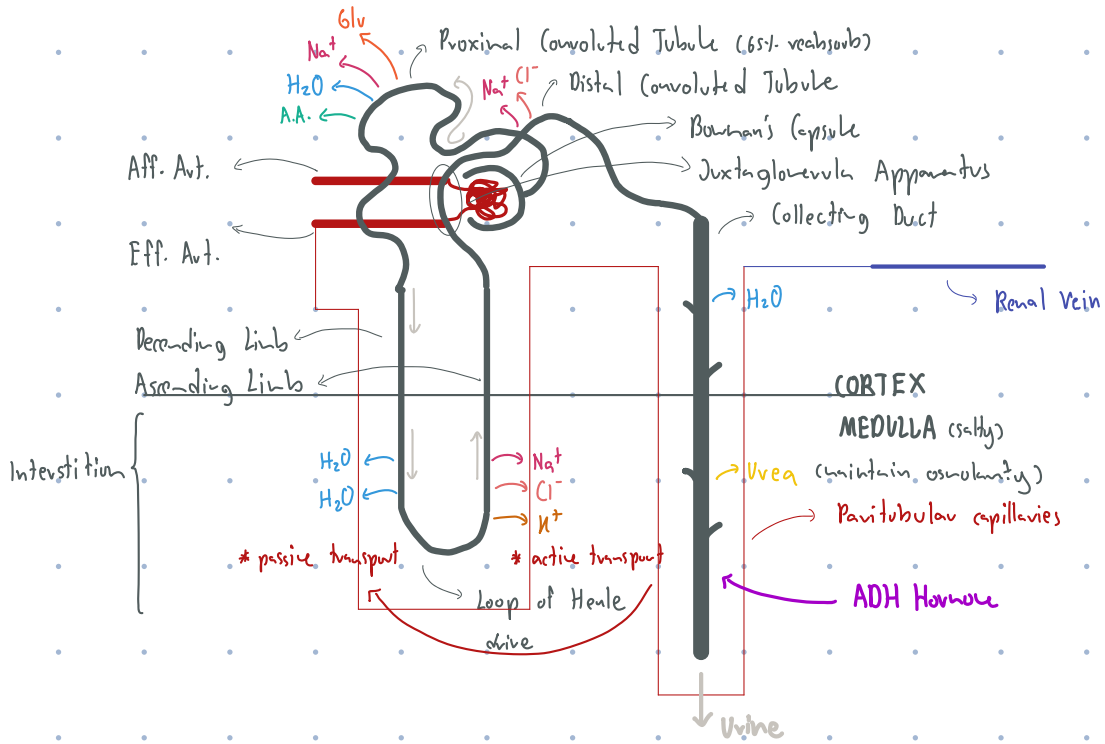 Glu
Na⁺
H₂O
A.A.
Proximal Convoluted Tubule (65% reabsorb)
Na⁺ Cl⁻
Distal Convoluted Tubule
Bowman's Capsule
Aff. Art.
Juxtaglomerula Apparatus
Collecting Duct
Eff. Art.
H₂O
Renal Vein
Decending Limb
Ascending Limb
CORTEX
MEDULLA (salty)
Interstition
H₂O
Na⁺
H₂O
Cl⁻
K⁺
Urea
(maintain osmolarity)
Paritubular capillaries
* passive transport
* active transport
Loop of Henle
ADH Hormone
drive
Urine